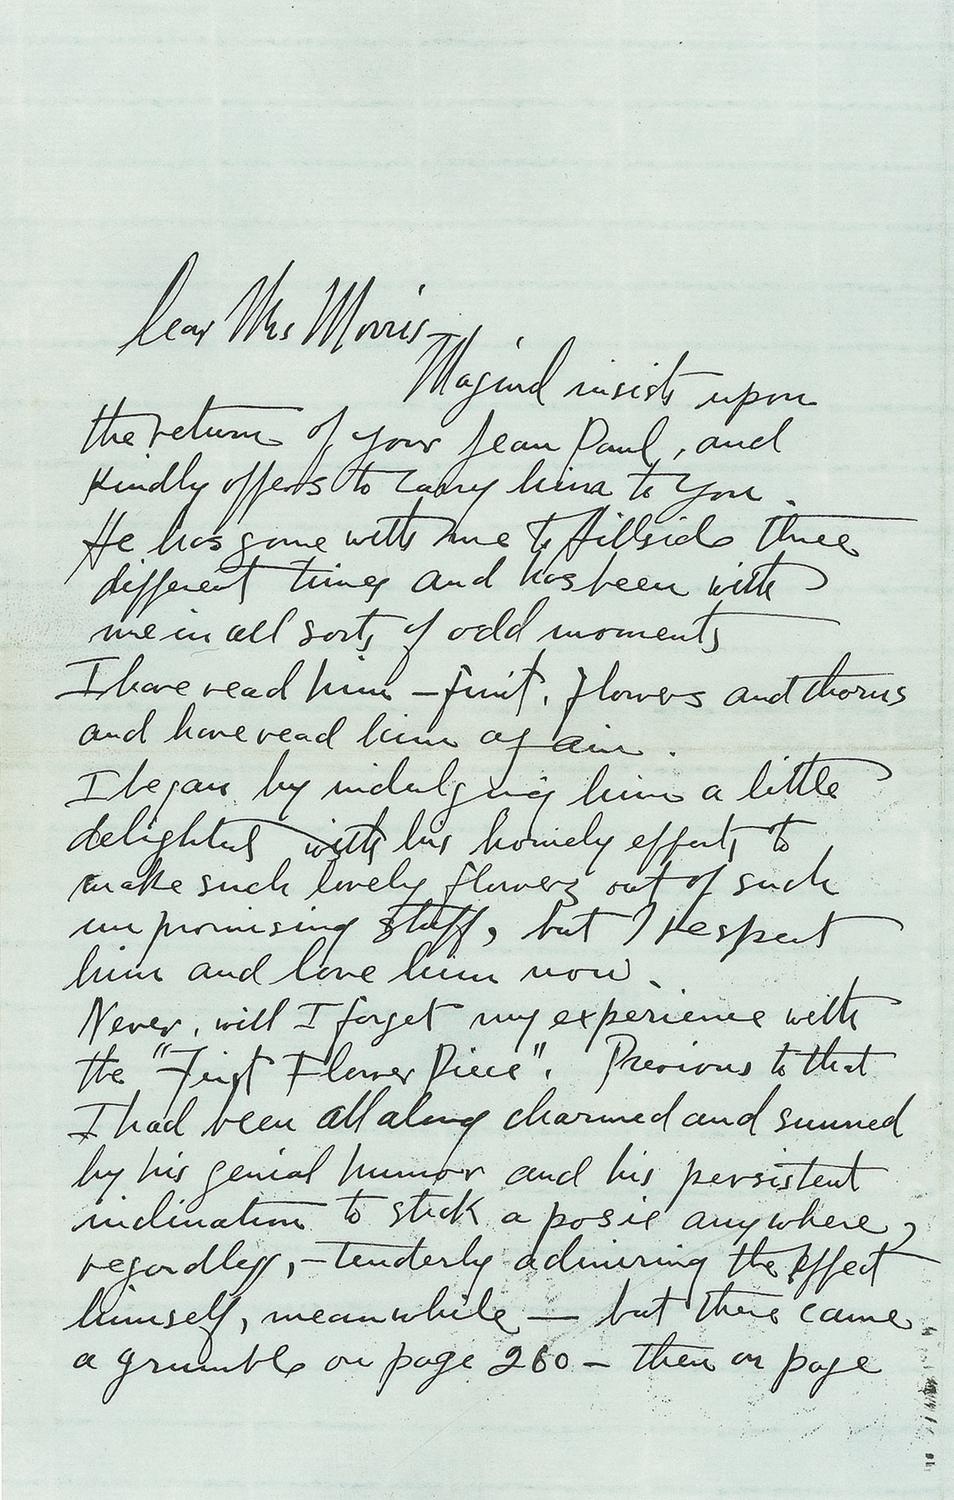 Dear Mrs Morris –
Maginel insists upon
the return of your Jean Paul, and
kindly offers to carry him to you.
He has gone with me to Hillside three
different times and has been with
me in all sorts of odd moments
I have read him – fruit, flowers and thorns
and have read him again.
I began by indulging him a little
delighted with his homely efforts to
make such lovely flowers out of such
unpromising stuff, but I respect
him and love him now.
Never, will I forget my experience with
the "First Flower Piece". Previous to that
I had been all along charmed and sunned
by his genial humor and his persistent
inclination to stick a posie anywhere,
regardless, – tenderly admiring the effect
himself, meanwhile — but there came
a grumble on page 260 – then on page